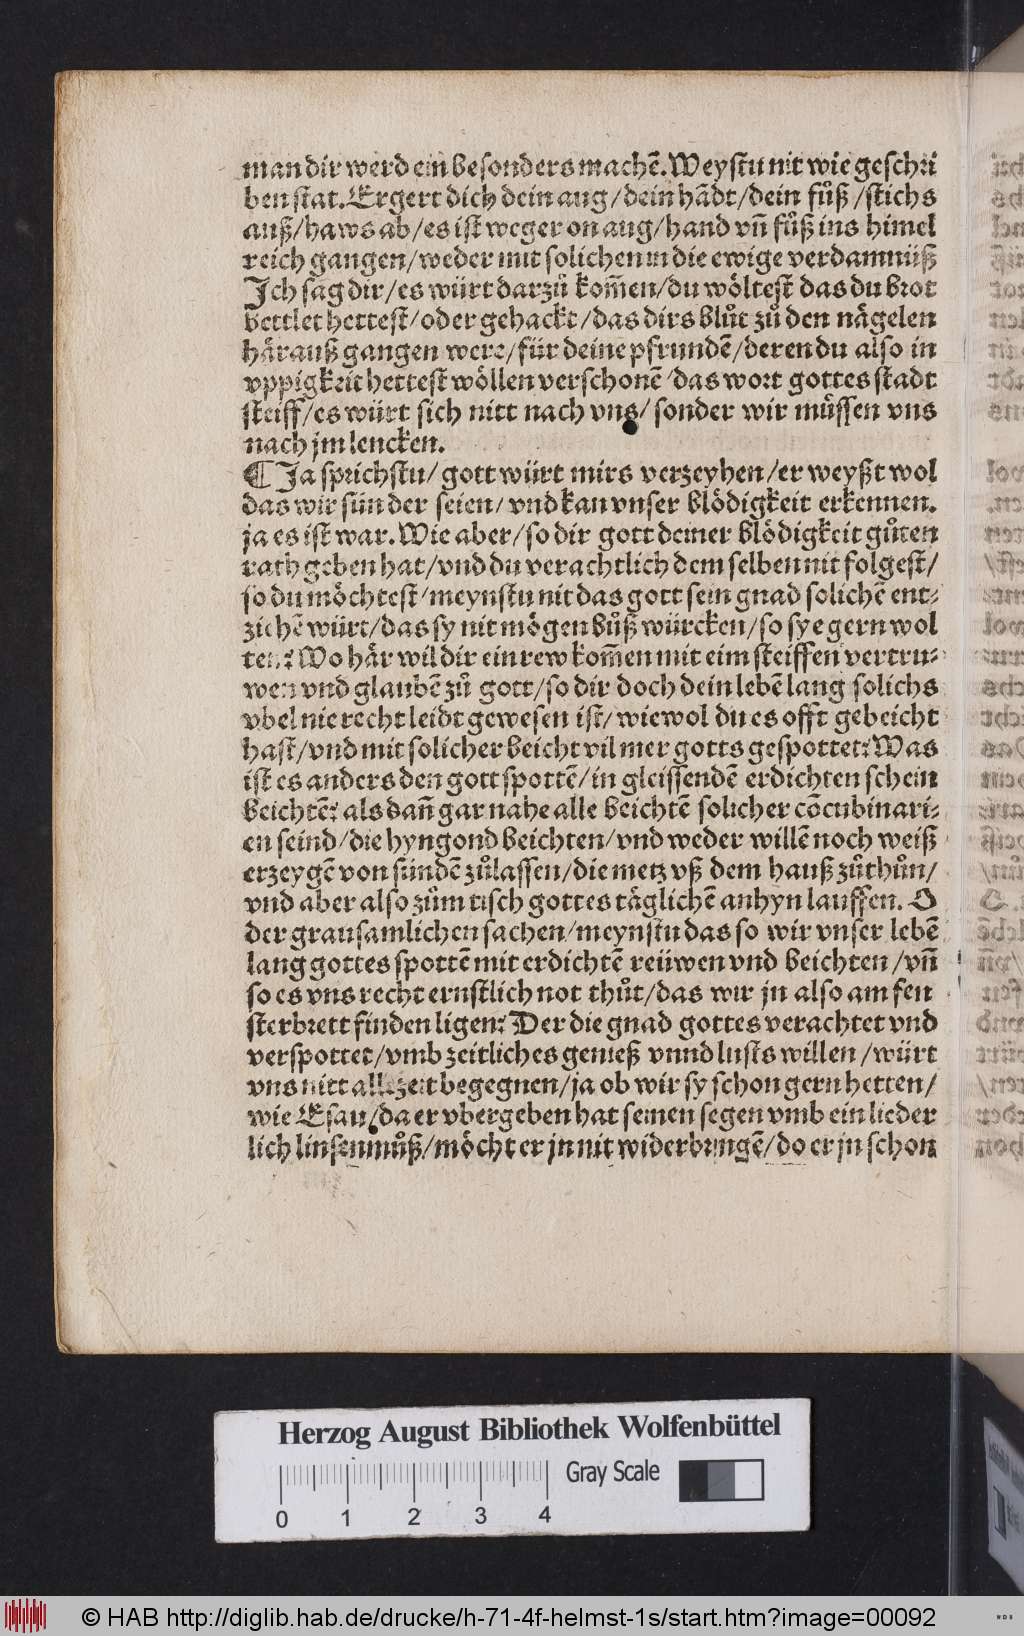 man dir werd ein besonders machē. Weystu nit wie geschri
ben stat. Ergert dich dein aug / dein hādt / dein fůß / stichs
auß / haws ab / es ist weger on aug / hand vñ fůß ins himel
reich gangen / weder mit solichen in die ewige verdamnüß
Ich sag dir / es würt darzů kom̄en / du wöltest das du brot
bettlet hettest / oder gehackt / das dirs blůt zů den nägelen
härauß gangen were / für deine pfrundē / deren du also in
vppigkeit hettest wöllen verschonē / das wort gottes stadt
steiff / es würt sich nitt nach vns / sonder wir müssen vns
nach jm lencken.
¶ Ja sprichstu / gott würt mirs verzeyhen / er weyßt wol
das wir sünder seien / vnd kan vnser blödigkeit erkennen.
ja es ist war. Wie aber / so dir gott deiner blödigkeit gůten
rath geben hat / vnd du verachtlich dem selben nit folgest /
so du möchtest / meynstu nit das gott sein gnad solichē ent⸗
ziehē würt / das sy nit mögen bůß würcken / so sye gern wol
ten? Wo här wil dir ein rew kom̄en mit eim steiffen vertru⸗
wen vnd glaubē zů gott / so dir doch dein lebē lang solichs
vbel nie recht leidt gewesen ist / wiewol du es offt gebeicht
hast / vnd mit solicher beicht vil mer gotts gespottet? Was
ist es anders den gott spottē / in gleissendē erdichten schein
beichtē? als dañ gar nahe alle beichtē solicher cōcubinari⸗
en seind / die hyngond beichten / vnd weder willē noch weiß
erzeygē von sündē zůlassen / die metz vß dem hauß zůthůn /
vnd aber also zům tisch gottes täglichē anhyn lauffen. O
der grausamlichen sachen / meynstu das so wir vnser lebē
lang gottes spottē mit erdichtē reüwen vnd beichten / vñ
so es vns recht ernstlich not thůt / das wir jn also am fen
sterbrett finden ligen? Der die gnad gottes verachtet vnd
verspottet / vmb zeitliches genieß vnnd lusts willen / würt
vns nitt allezeit begegnen / ja ob wir sy schon gern hetten /
wie Esau / da er vbergeben hat seinen segen vmb ein lieder
lich linsenmůß / möcht er jn nit widerbringē / do er jn schon
Herzog August Bibliothek Wolfenbüttel
Gray Scale
0 1 2 3 4
© HAB http://diglib.hab.de/drucke/h-71-4f-helmst-1s/start.htm?image=00092